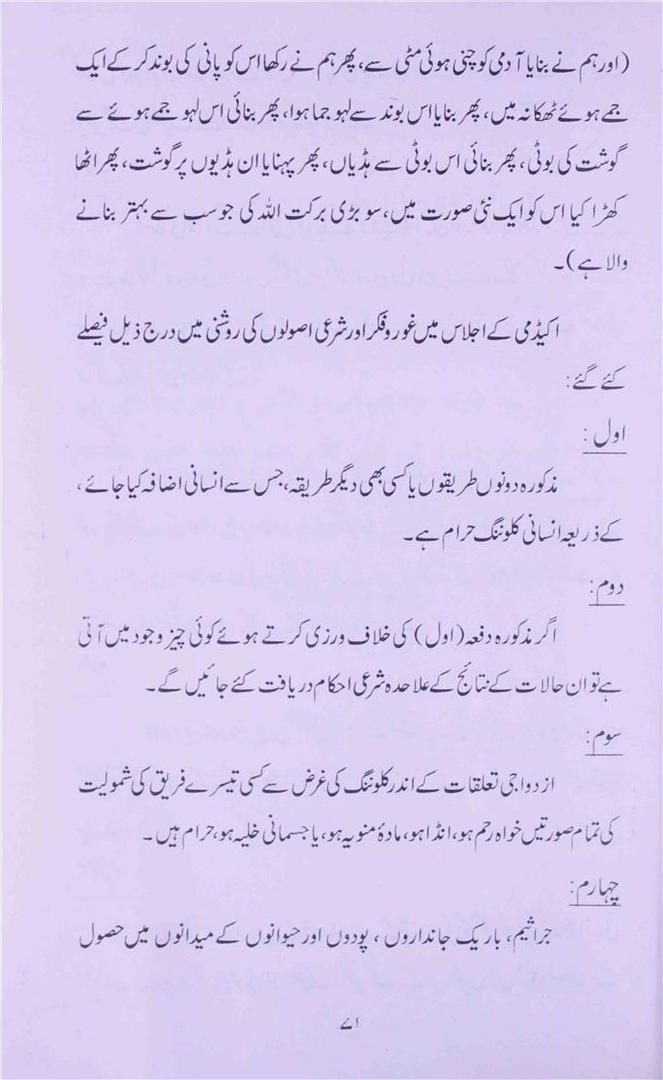 (اور ہم نے بنایا آدمی کو چنی ہوئی مٹی سے، پھر ہم نے رکھا اس کو پانی کی بوند کر کے ایک
جمے ہوئے ٹھکانہ میں، پھر بنایا اس بوند سے لہو جما ہوا، پھر بنائی اس لہو جمے ہوئے سے
گوشت کی بوٹی، پھر بنائی اس بوٹی سے ہڈیاں، پھر پہنایا ان ہڈیوں پر گوشت، پھر اٹھا
کھڑا کیا اس کو ایک نئی صورت میں، سو بڑی برکت اللہ کی جو سب سے بہتر بنانے
والا ہے)۔
اکیڈمی کے اجلاس میں غور و فکر اور شرعی اصولوں کی روشنی میں درج ذیل فیصلے
کئے گئے:
اول:
مذکورہ دونوں طریقوں یا کسی بھی دیگر طریقہ، جس سے انسانی اضافہ کیا جائے،
کے ذریعہ انسانی کلوننگ حرام ہے۔
دوم:
اگر مذکورہ دفعہ (اول) کی خلاف ورزی کرتے ہوئے کوئی چیز وجود میں آتی
ہے تو ان حالات کے نتائج کے علاحدہ شرعی احکام دریافت کئے جائیں گے۔
سوم:
ازدواجی تعلقات کے اندر کلوننگ کی غرض سے کسی تیسرے فریق کی شمولیت
کی تمام صورتیں خواہ رحم ہو، انڈا ہو، مادۂ منویہ ہو، یا جسمانی خلیہ ہو، حرام ہیں۔
چہارم:
جراثیم، باریک جانداروں، پودوں اور حیوانوں کے میدانوں میں حصول
۷۱